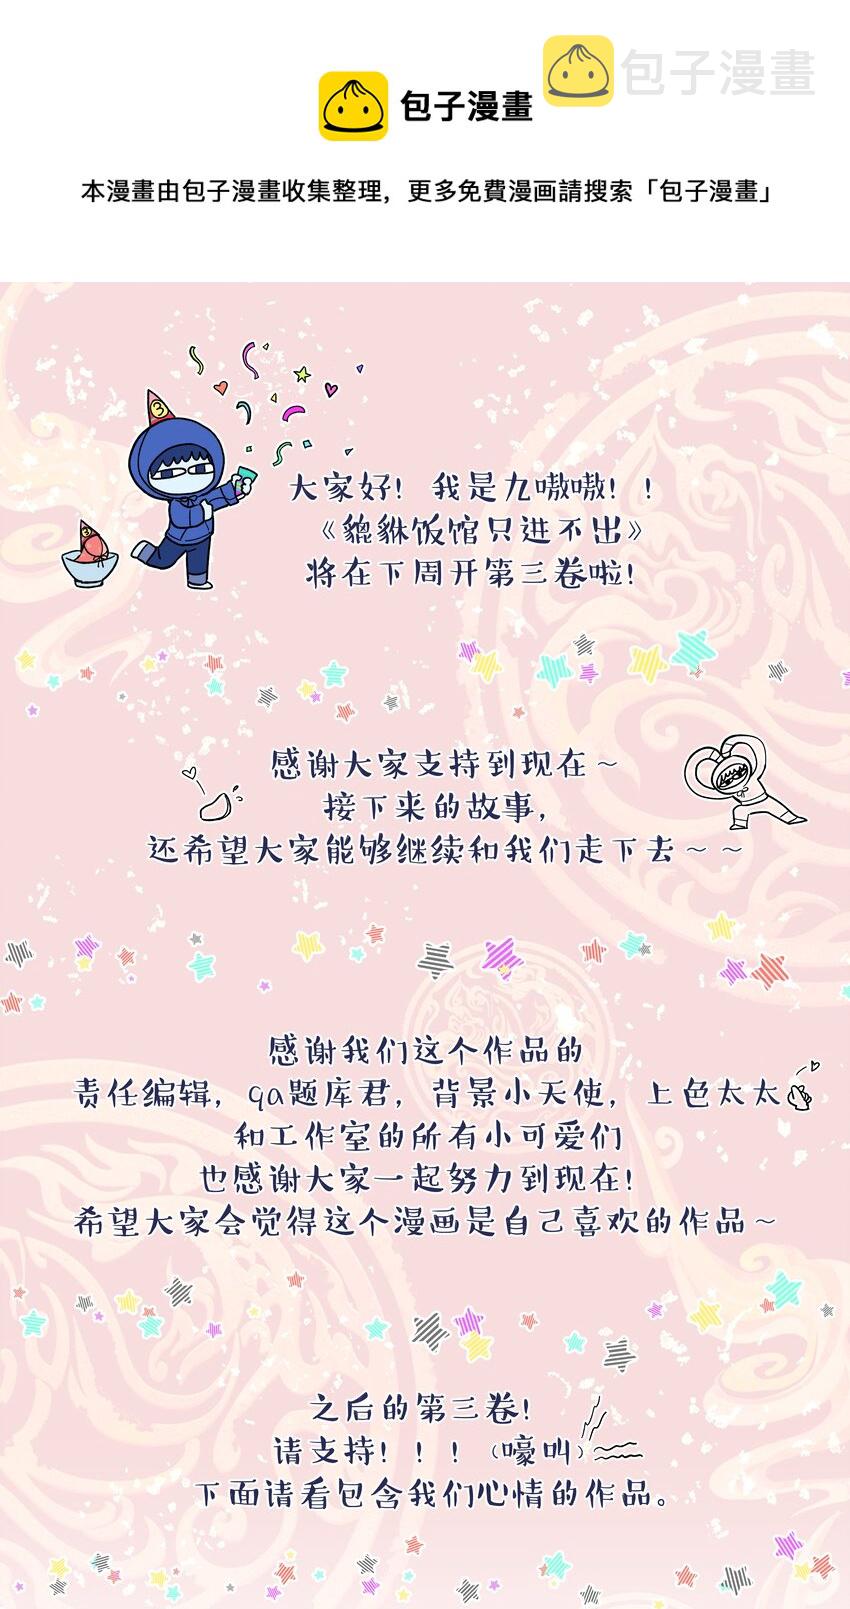 包子漫畫
包子漫畫
本漫畫由包子漫畫收集整理，更多免費漫画請搜索「包子漫畫」
3
3
大家好！我是九嗷嗷！！
《貔貅饭馆只进不出》
将在下周开第三卷啦！
感谢大家支持到现在～
接下来的故事，
还希望大家能够继续和我们走下去～～
感谢我们这个作品的
责任编辑，qa题库君，背景小天使，上色太太
和工作室的所有小可爱们
也感谢大家一起努力到现在！
希望大家会觉得这个漫画是自己喜欢的作品～
之后的第三卷！
请支持！！！（嚎叫）
下面请看包含我们心情的作品。